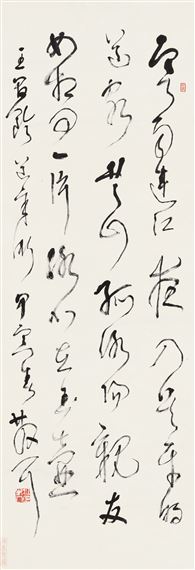 寒雨連江夜入吳平明
送客楚山孤洛陽親友
如相問一片冰心在玉壺
王昌齡送辛漸甲寅春散耳